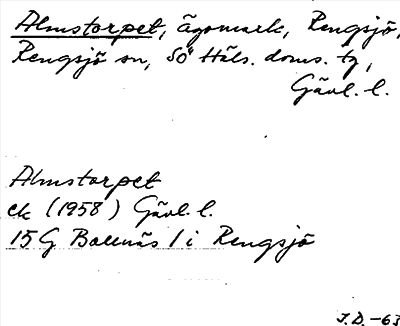 Almstorpet, ägomark, Rengsjö,
Rengsjö sn, Sö Häls. doms. tg,
Gävl. l.
Almstorpet
ek (1958) Gävl. l.
15 G Bollnäs / i Rengsjö
J.D. -63